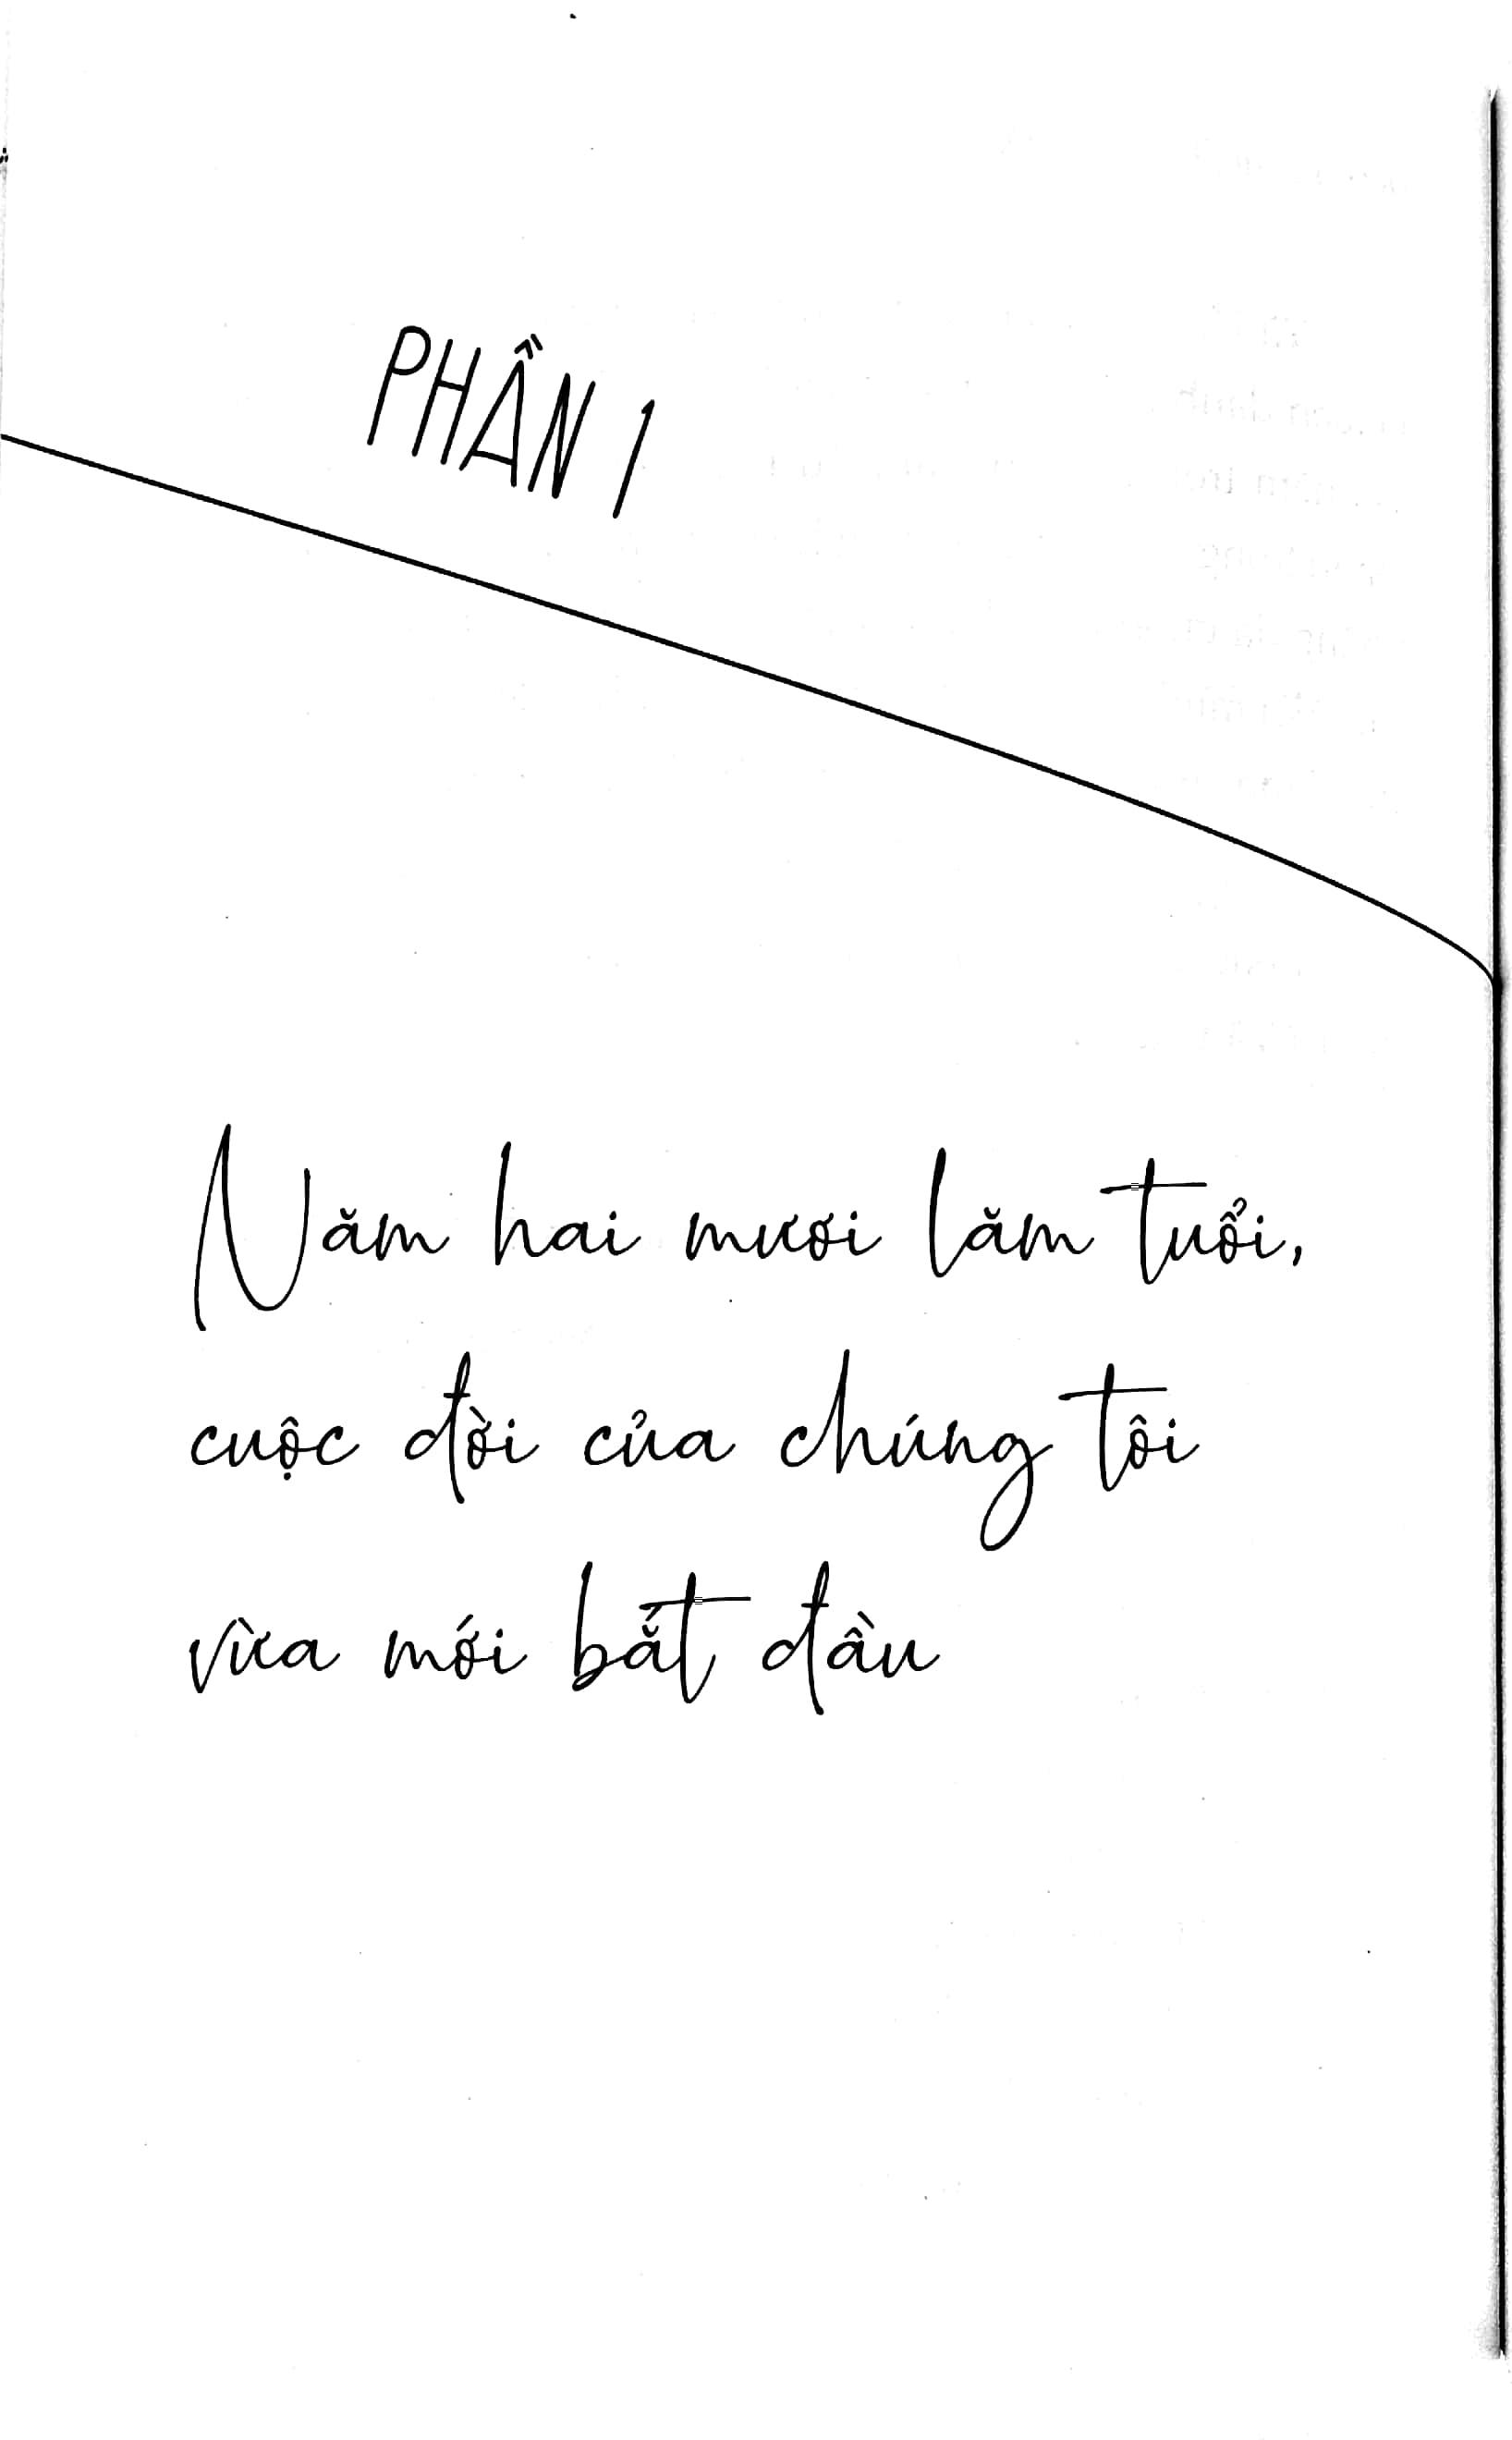 PHẦN 1
Năm hai mươi lăm tuổi,
cuộc đời của chúng tôi
vừa mới bắt đầu